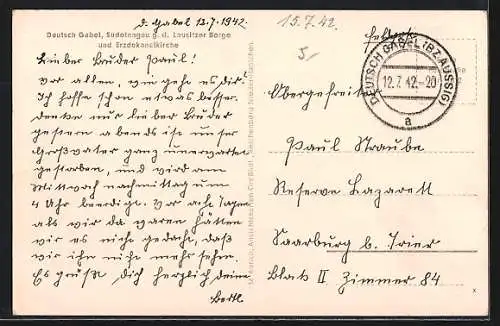 D. Gabel 12.7.1942.
15.7.42.
Deutsch Gabel, Sudetengau g. d. Lausitzer Berge
und Erzdekanatkirche
Lieber Bruder Paul!
Vor allen, wie geht es dir?
Ich hoffe schon etwas besser.
Denke nur lieber Bruder
gestern abends ist unser
Großvater ganz unerwartet
gestorben, und wird am
Mittwoch nachmittag um
4 Uhr beerdigt. Vor acht Tagen
als wir da waren hätten
wir es nicht gedacht, daß
wir ihn nicht mehr sehn.
Es grüßt dich herzlich deine
Bertl
5,-
Feldpost
DEUTSCH GABEL (BZ. AUSSIG)
12.7.42.-20
a
Obergefreiter
Paul Straube
Reserve Lazarett
Saarburg b. Trier
Block II Zimmer 84